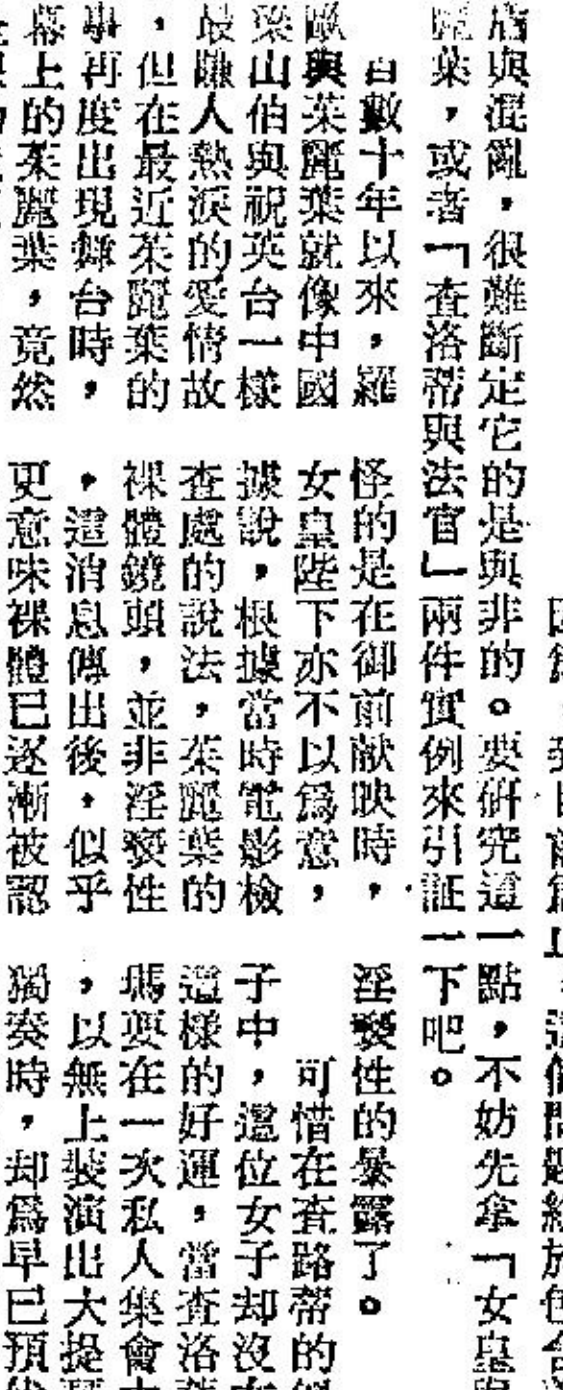 與混亂，很難斷定它的是與非的。要研究這一點，不妨先拿「女皇與
麗葉，或者「查洛蒂與法官」兩件實例來引証一下吧。
自數十年以來，羅
歐與茱麗葉就像中國
梁山伯與祝英台一樣
最賺人熱淚的愛情故
，但在最近茱麗葉的
事再度出現舞台時，
幕上的茱麗葉，竟然
怪的是在御前献映時，
女皇陛下亦不以爲意，
據說，根據當時電影檢
查處的說法，茱麗葉的
裸體鏡頭，並非淫褻性
，這消息傳出後，似乎
更意味裸體已逐漸被認
淫褻性的暴露了。
可惜在查路蒂的
子中，這位女子却沒
這樣的好運，當查洛蒂
瑪要在一次私人集會
，以無上裝演出大提琴
獨奏時，却爲早已預